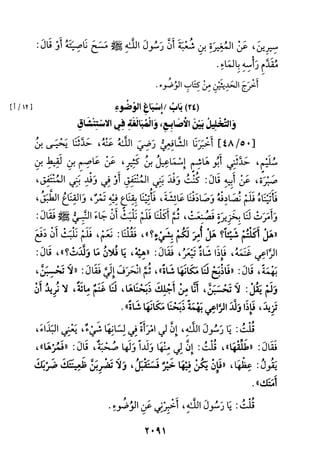 سِيرِينَ، عَنْ المُغِيرَةِ بنِ شُعْبَةَ أَنَّ رَسُولَ اللَّهِ ﷺ مَسَحَ نَاصِيَتَهُ أَوْ قَالَ:
مُقَدَّمِ رَأْسِهِ بِالمَاءِ.
أَخْرَجَ الحَدِيثَيْنِ مِنْ كِتَابِ الوُضُوءِ.
(٢٤) بَابُ / إِسْبَاغِ الوُضُوءِ [١٢ / أ]
وَالتَّخْلِيلُ بَيْنَ الأَصَابِعِ، وَالْمُبَالَغَةِ فِي الاسْتِنْشَاقِ
[٤٨/٥٠] أَخْبَرَنَا الشَّافِعِيُّ رَضِيَ اللَّهُ عَنْهُ، حَدَّثَنَا يَحْيَى بنُ
سُلَيْمٍ، حَدَّثَنِي أَبُو هَاشِمٍ إِسْمَاعِيلُ بنُ كَثِيرٍ، عَنْ عَاصِمِ بنِ لَقِيطِ بنِ
صَبْرَةَ، عَنْ أَبِيهِ قَالَ: كُنْتُ وَفْدَ بَنِي المُنْتَفِقِ أَوْ فِي وَفْدِ بَنِي المُنْتَفِقِ،
فَأَتَيْنَاهُ فَلَمْ نُصَادِفْهُ وَصَادَفْنَا عَائِشَةَ، فَأُتِيْنَا بِقِنَاعٍ فِيْهِ تَمْرٌ، وَالقِنَاعُ الطَّبَقُ،
وَأَمَرَتْ لَنَا بِخَزِيرَةٍ فَصُنِعَتْ، ثُمَّ أَكَلْنَا فَلَمْ نَلْبَثْ أَنْ جَاءَ النَّبِيُّ ﷺ فَقَالَ:
«هَلْ أَكَلْتُمْ شَيْئاً؟ هَلْ أُمِرَ لَكُمْ بِشَيْءٍ؟»، فَقُلْنَا: نَعَمْ، فَلَمْ نَلْبَثْ أَنْ دَفَعَ
الرَّاعِي غَنَمَهُ، فَإِذَا شَاةٌ تَيْعَرُ، فَقَالَ: «هِيْهِ، يَا فُلَانُ مَا وَلَّدَتْ؟»، قَالَ:
بَهْمَةً، قَالَ: «فَاذْبَحْ لَنَا مَكَانَهَا شَاةً»، ثُمَّ انْحَرَفَ إِلَيَّ فَقَالَ: «لَا تَحْسِبَنَّ،
وَلَمْ يَقُلْ: لَا تَحْسَبَنَّ، أَنَّا مِنْ أَجْلِكَ ذَبَحْنَاهَا، لَنَا غَنَمٌ مِائَةٌ، لَا نُرِيدُ أَنْ
تَزِيدَ، فَإِذَا وَلَّدَ الرَّاعِي بَهْمَةً ذَبَحْنَا مَكَانَهَا شَاةً».
قُلْتُ: يَا رَسُولَ اللَّهِ، إِنَّ لِي امْرَأَةً فِي لِسَانِهَا شَيْءٌ، يَعْنِي البَذَاءَ،
فَقَالَ: «طَلِّقْهَا»، قُلْتُ: إِنَّ لِي مِنْهَا وَلَداً وَلَهَا صُحْبَةٌ، قَالَ: «فَمُرْهَا»،
يَقُولُ: عِظْهَا، «فَإِنْ يَكُنْ فِيْهَا خَيْرٌ فَسَتَقْبَلُ، وَلَا تَضْرِبَنَّ ظَعِينَتَكَ ضَرْبَكَ
أَمَتَكَ».
قُلْتُ: يَا رَسُولَ اللَّهِ، أَخْبِرْنِي عَنِ الوُضُوءِ.
٢٠٩١